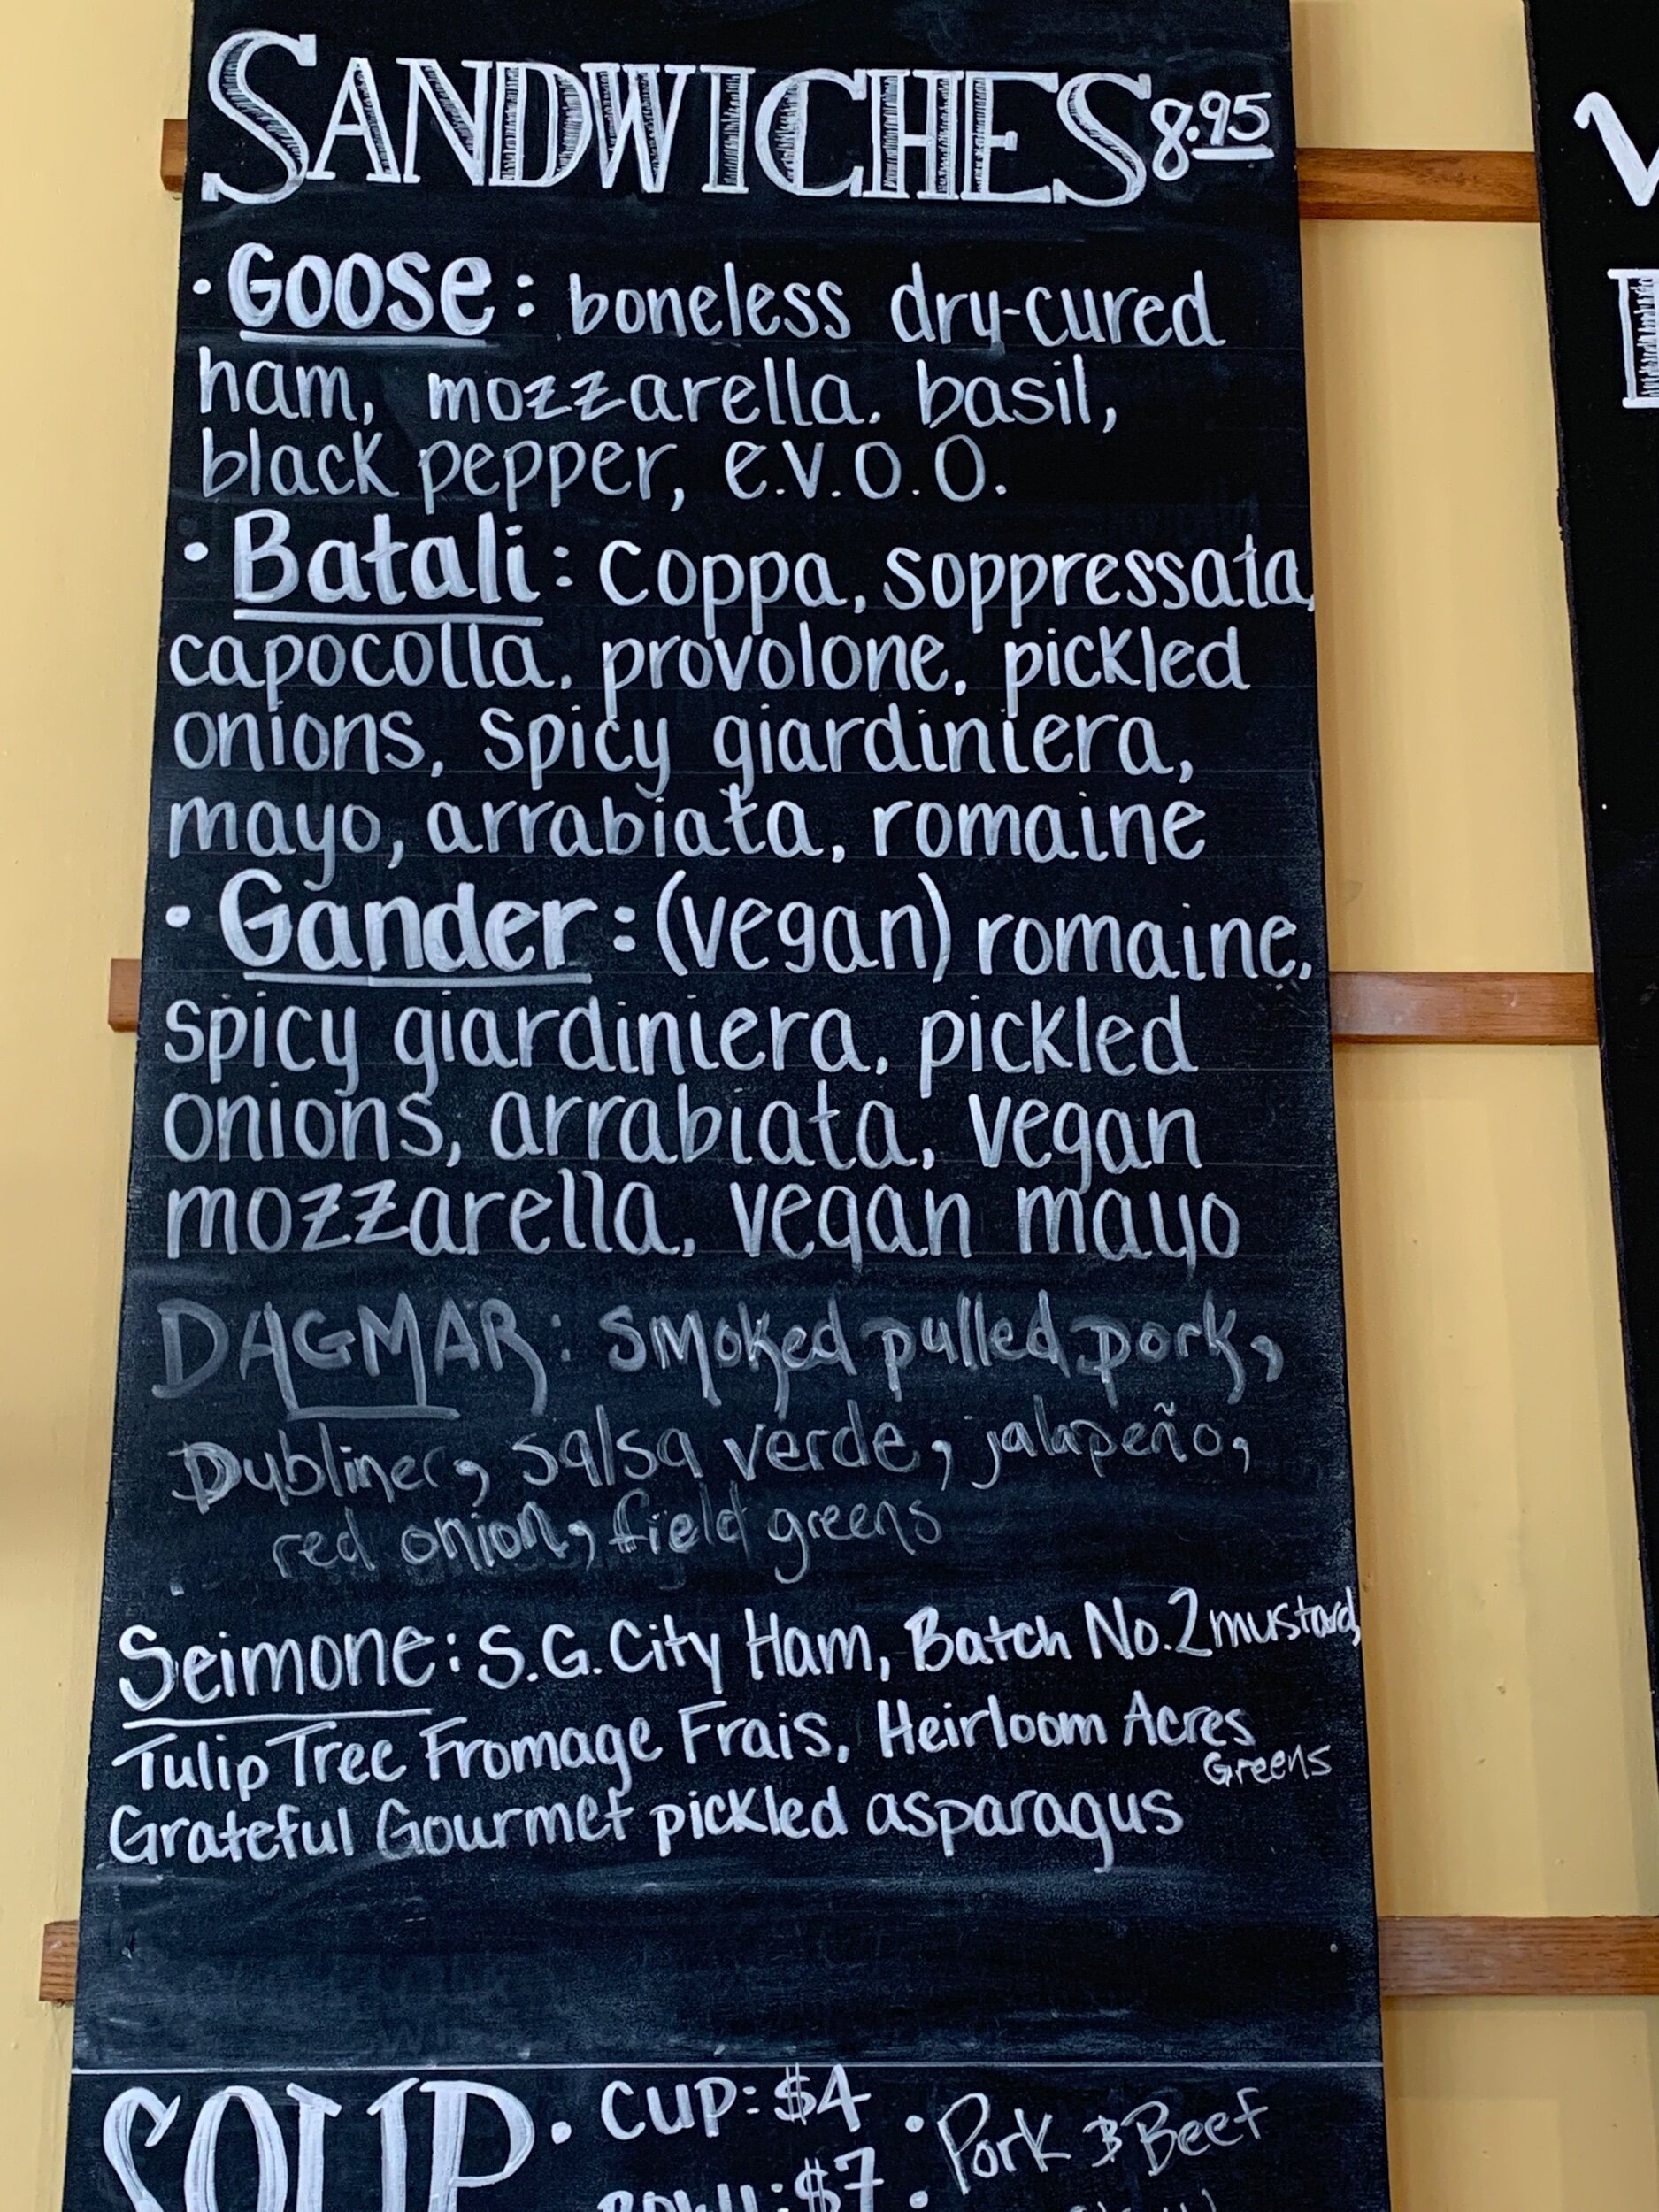 SANDWICHES 8.95
• Goose: boneless dry-cured
ham, mozzarella, basil,
black pepper, e.v.o.o.
• Batali: coppa, soppressata,
capocolla, provolone, pickled
onions, spicy giardiniera,
mayo, arrabiata, romaine
• Gander: (vegan) romaine,
spicy giardiniera, pickled
onions, arrabiata, vegan
mozzarella, vegan mayo
DAGMAR: smoked pulled pork,
Dubliner, salsa verde, jalapeño,
red onion, field greens
Seimone: S.G. City Ham, Batch No. 2 mustard,
Tulip Tree Fromage Frais, Heirloom Acres
Greens
Grateful Gourmet pickled asparagus
SOUP • CUP: $4 • Pork & Beef
BOWL: $7 •